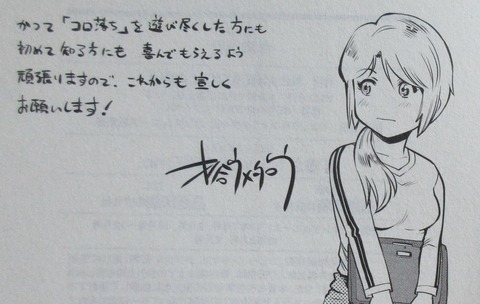 かつて「コロ落ち」を遊び尽くした方にも
初めて知る方にも 喜んでもらえるよう
頑張りますので、これからも 宜しく
お願いします！